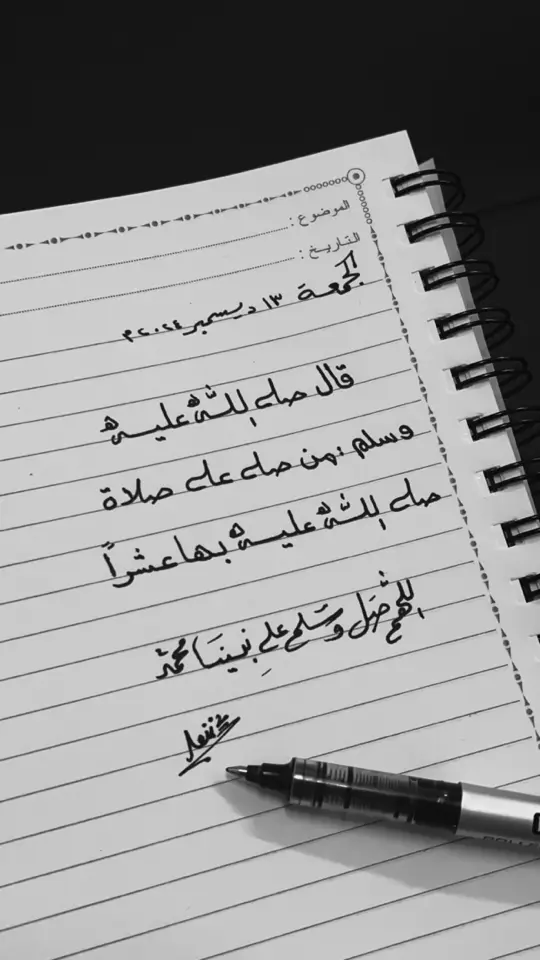 الموضوع :
التاريخ :
الجمعة ١٣ ديسمبر ٢٠٢٤م
قال صلى الله عليه
وسلم : من صلى علي صلاة
صلى الله عليه بها عشراً
اللهم صَل وسَلم علىٰ نبينَا محمد